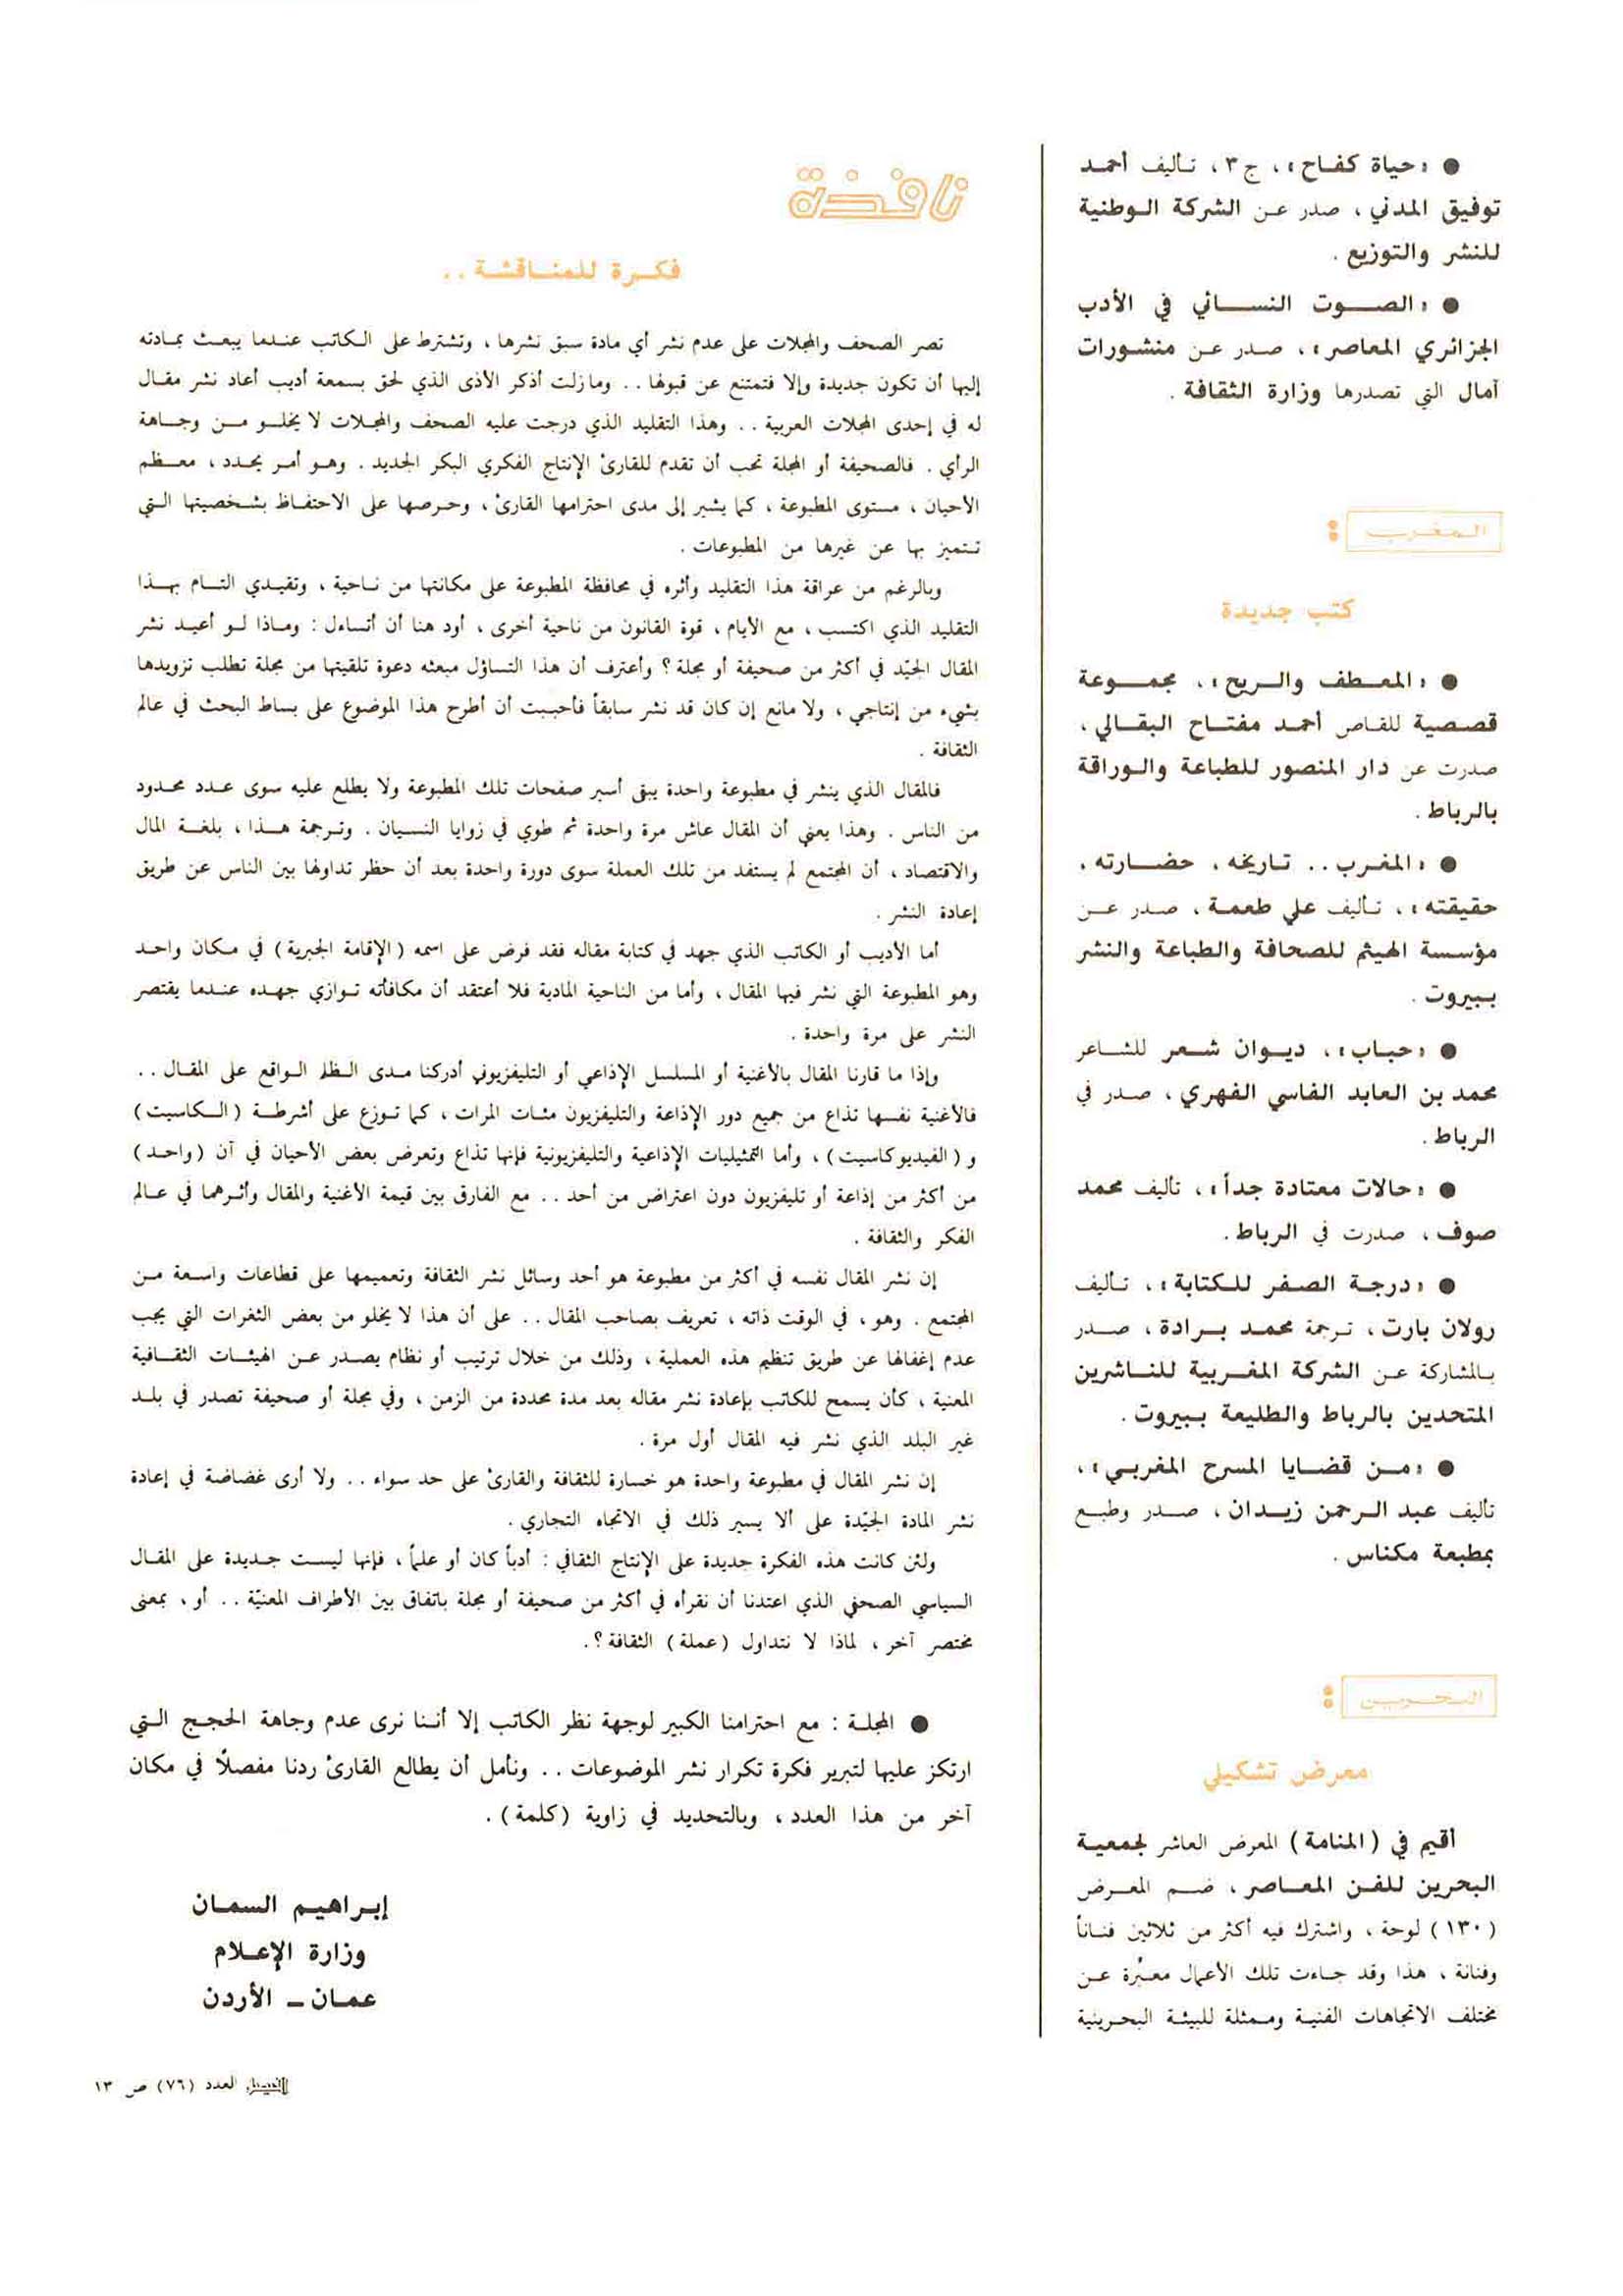 ● «حياة كفاح»، ج ٣، تأليف أحمد
توفيق المدني، صدر عن الشركة الوطنية
للنشر والتوزيع.
● «الصوت النسائي في الأدب
الجزائري المعاصر»، صدر عن منشورات
آمال التي تصدرها وزارة الثقافة.
المغرب :
كتب جديدة
● «المعطف والريح»، مجموعة
قصصية للقاص أحمد مفتاح البقالي،
صدرت عن دار المنصور للطباعة والوراقة
بالرباط.
● «المغرب.. تاريخه، حضارته،
حقيقته»، تأليف علي طعمة، صدر عن
مؤسسة الهيثم للصحافة والطباعة والنشر
ببيروت.
● «حباب»، ديوان شعر للشاعر
محمد بن العابد الفاسي الفهري، صدر في
الرباط.
● «حالات معتادة جداً»، تأليف محمد
صوف، صدرت في الرباط.
● «درجة الصفر للكتابة»، تأليف
رولان بارت، ترجمة محمد برادة، صدر
بالمشاركة عن الشركة المغربية للناشرين
المتحدين بالرباط والطليعة ببيروت.
● «من قضايا المسرح المغربي»،
تأليف عبد الرحمن زيدان، صدر وطبع
بمطبعة مكناس.
البحرين :
معرض تشكيلي
أقيم في (المنامة) المعرض العاشر لجمعية
البحرين للفن المعاصر، ضم المعرض
(١٣٠) لوحة، واشترك فيه أكثر من ثلاثين فناناً
وفنانة، هذا وقد جاءت تلك الأعمال معبّرة عن
مختلف الاتجاهات الفنية وممثلة للبيئة البحرينية
نافذة
فكرة للمناقشة..
تصر الصحف والمجلات على عدم نشر أي مادة سبق نشرها، وتشترط على الكاتب عندما يبعث بمادته
إليها أن تكون جديدة وإلا فتمتنع عن قبولها.. ومازلت أذكر الأذى الذي لحق بسمعة أديب أعاد نشر مقال
له في إحدى المجلات العربية.. وهذا التقليد الذي درجت عليه الصحف والمجلات لا يخلو من وجاهة
الرأي. فالصحيفة أو المجلة تحب أن تقدم للقارئ الإنتاج الفكري البكر الجديد. وهو أمر يحدد، معظم
الأحيان، مستوى المطبوعة، كما يشير إلى مدى احترامها القارئ، وحرصها على الاحتفاظ بشخصيتها التي
تتميز بها عن غيرها من المطبوعات.
وبالرغم من عراقة هذا التقليد وأثره في محافظة المطبوعة على مكانتها من ناحية، وتقيدي التام بهذا
التقليد الذي اكتسب، مع الأيام، قوة القانون من ناحية أخرى، أود هنا أن أتساءل: وماذا لو أعيد نشر
المقال الجيّد في أكثر من صحيفة أو مجلة؟ وأعترف أن هذا التساؤل مبعثه دعوة تلقيتها من مجلة تطلب تزويدها
بشيء من إنتاجي، ولا مانع إن كان قد نشر سابقاً فأحببت أن أطرح هذا الموضوع على بساط البحث في عالم
الثقافة.
فالمقال الذي ينشر في مطبوعة واحدة يبقى أسير صفحات تلك المطبوعة ولا يطلع عليه سوى عدد محدود
من الناس. وهذا يعني أن المقال عاش مرة واحدة ثم طوي في زوايا النسيان. وترجمة هذا، بلغة المال
والاقتصاد، أن المجتمع لم يستفد من تلك العملة سوى دورة واحدة بعد أن حظر تداولها بين الناس عن طريق
إعادة النشر.
أما الأديب أو الكاتب الذي جهد في كتابة مقاله فقد فرض على اسمه (الإقامة الجبرية) في مكان واحد
وهو المطبوعة التي نشر فيها المقال، وأما من الناحية المادية فلا أعتقد أن مكافأته توازي جهده عندما يقتصر
النشر على مرة واحدة.
وإذا ما قارنا المقال بالأغنية أو المسلسل الإذاعي أو التليفزيوني أدركنا مدى الظلم الواقع على المقال..
فالأغنية نفسها تذاع من جميع دور الإذاعة والتليفزيون مئات المرات، كما توزع على أشرطة (الكاسيت)
و(الفيديوكاسيت)، وأما التمثيليات الإذاعية والتليفزيونية فإنها تذاع وتعرض بعض الأحيان في آن (واحد)
من أكثر من إذاعة أو تليفزيون دون اعتراض من أحد.. مع الفارق بين قيمة الأغنية والمقال وأثرهما في عالم
الفكر والثقافة.
إن نشر المقال نفسه في أكثر من مطبوعة هو أحد وسائل نشر الثقافة وتعميمها على قطاعات واسعة من
المجتمع. وهو، في الوقت ذاته، تعريف بصاحب المقال.. على أن هذا لا يخلو من بعض الثغرات التي يجب
عدم إغفالها عن طريق تنظيم هذه العملية، وذلك من خلال ترتيب أو نظام يصدر عن الهيئات الثقافية
المعنية، كأن يسمح للكاتب بإعادة نشر مقاله بعد مدة محددة من الزمن، وفي مجلة أو صحيفة تصدر في بلد
غير البلد الذي نشر فيه المقال أول مرة.
إن نشر المقال في مطبوعة واحدة هو خسارة للثقافة والقارئ على حد سواء.. ولا أرى غضاضة في إعادة
نشر المادة الجيّدة على ألا يسير ذلك في الاتجاه التجاري.
ولئن كانت هذه الفكرة جديدة على الإنتاج الثقافي: أدباً كان أو علماً، فإنها ليست جديدة على المقال
السياسي الصحفي الذي اعتدنا أن نقرأه في أكثر من صحيفة أو مجلة باتفاق بين الأطراف المعنيّة.. أو، بمعنى
مختصر آخر، لماذا لا نتداول (عملة) الثقافة؟.
● المجلة: مع احترامنا الكبير لوجهة نظر الكاتب إلا أننا نرى عدم وجاهة الحجج التي
ارتكز عليها لتبرير فكرة تكرار نشر الموضوعات.. ونأمل أن يطالع القارئ ردنا مفصلاً في مكان
آخر من هذا العدد، وبالتحديد في زاوية (كلمة).
إبراهيم السمان
وزارة الإعلام
عمان - الأردن
الفيصل العدد (٧٦) ص ١٣